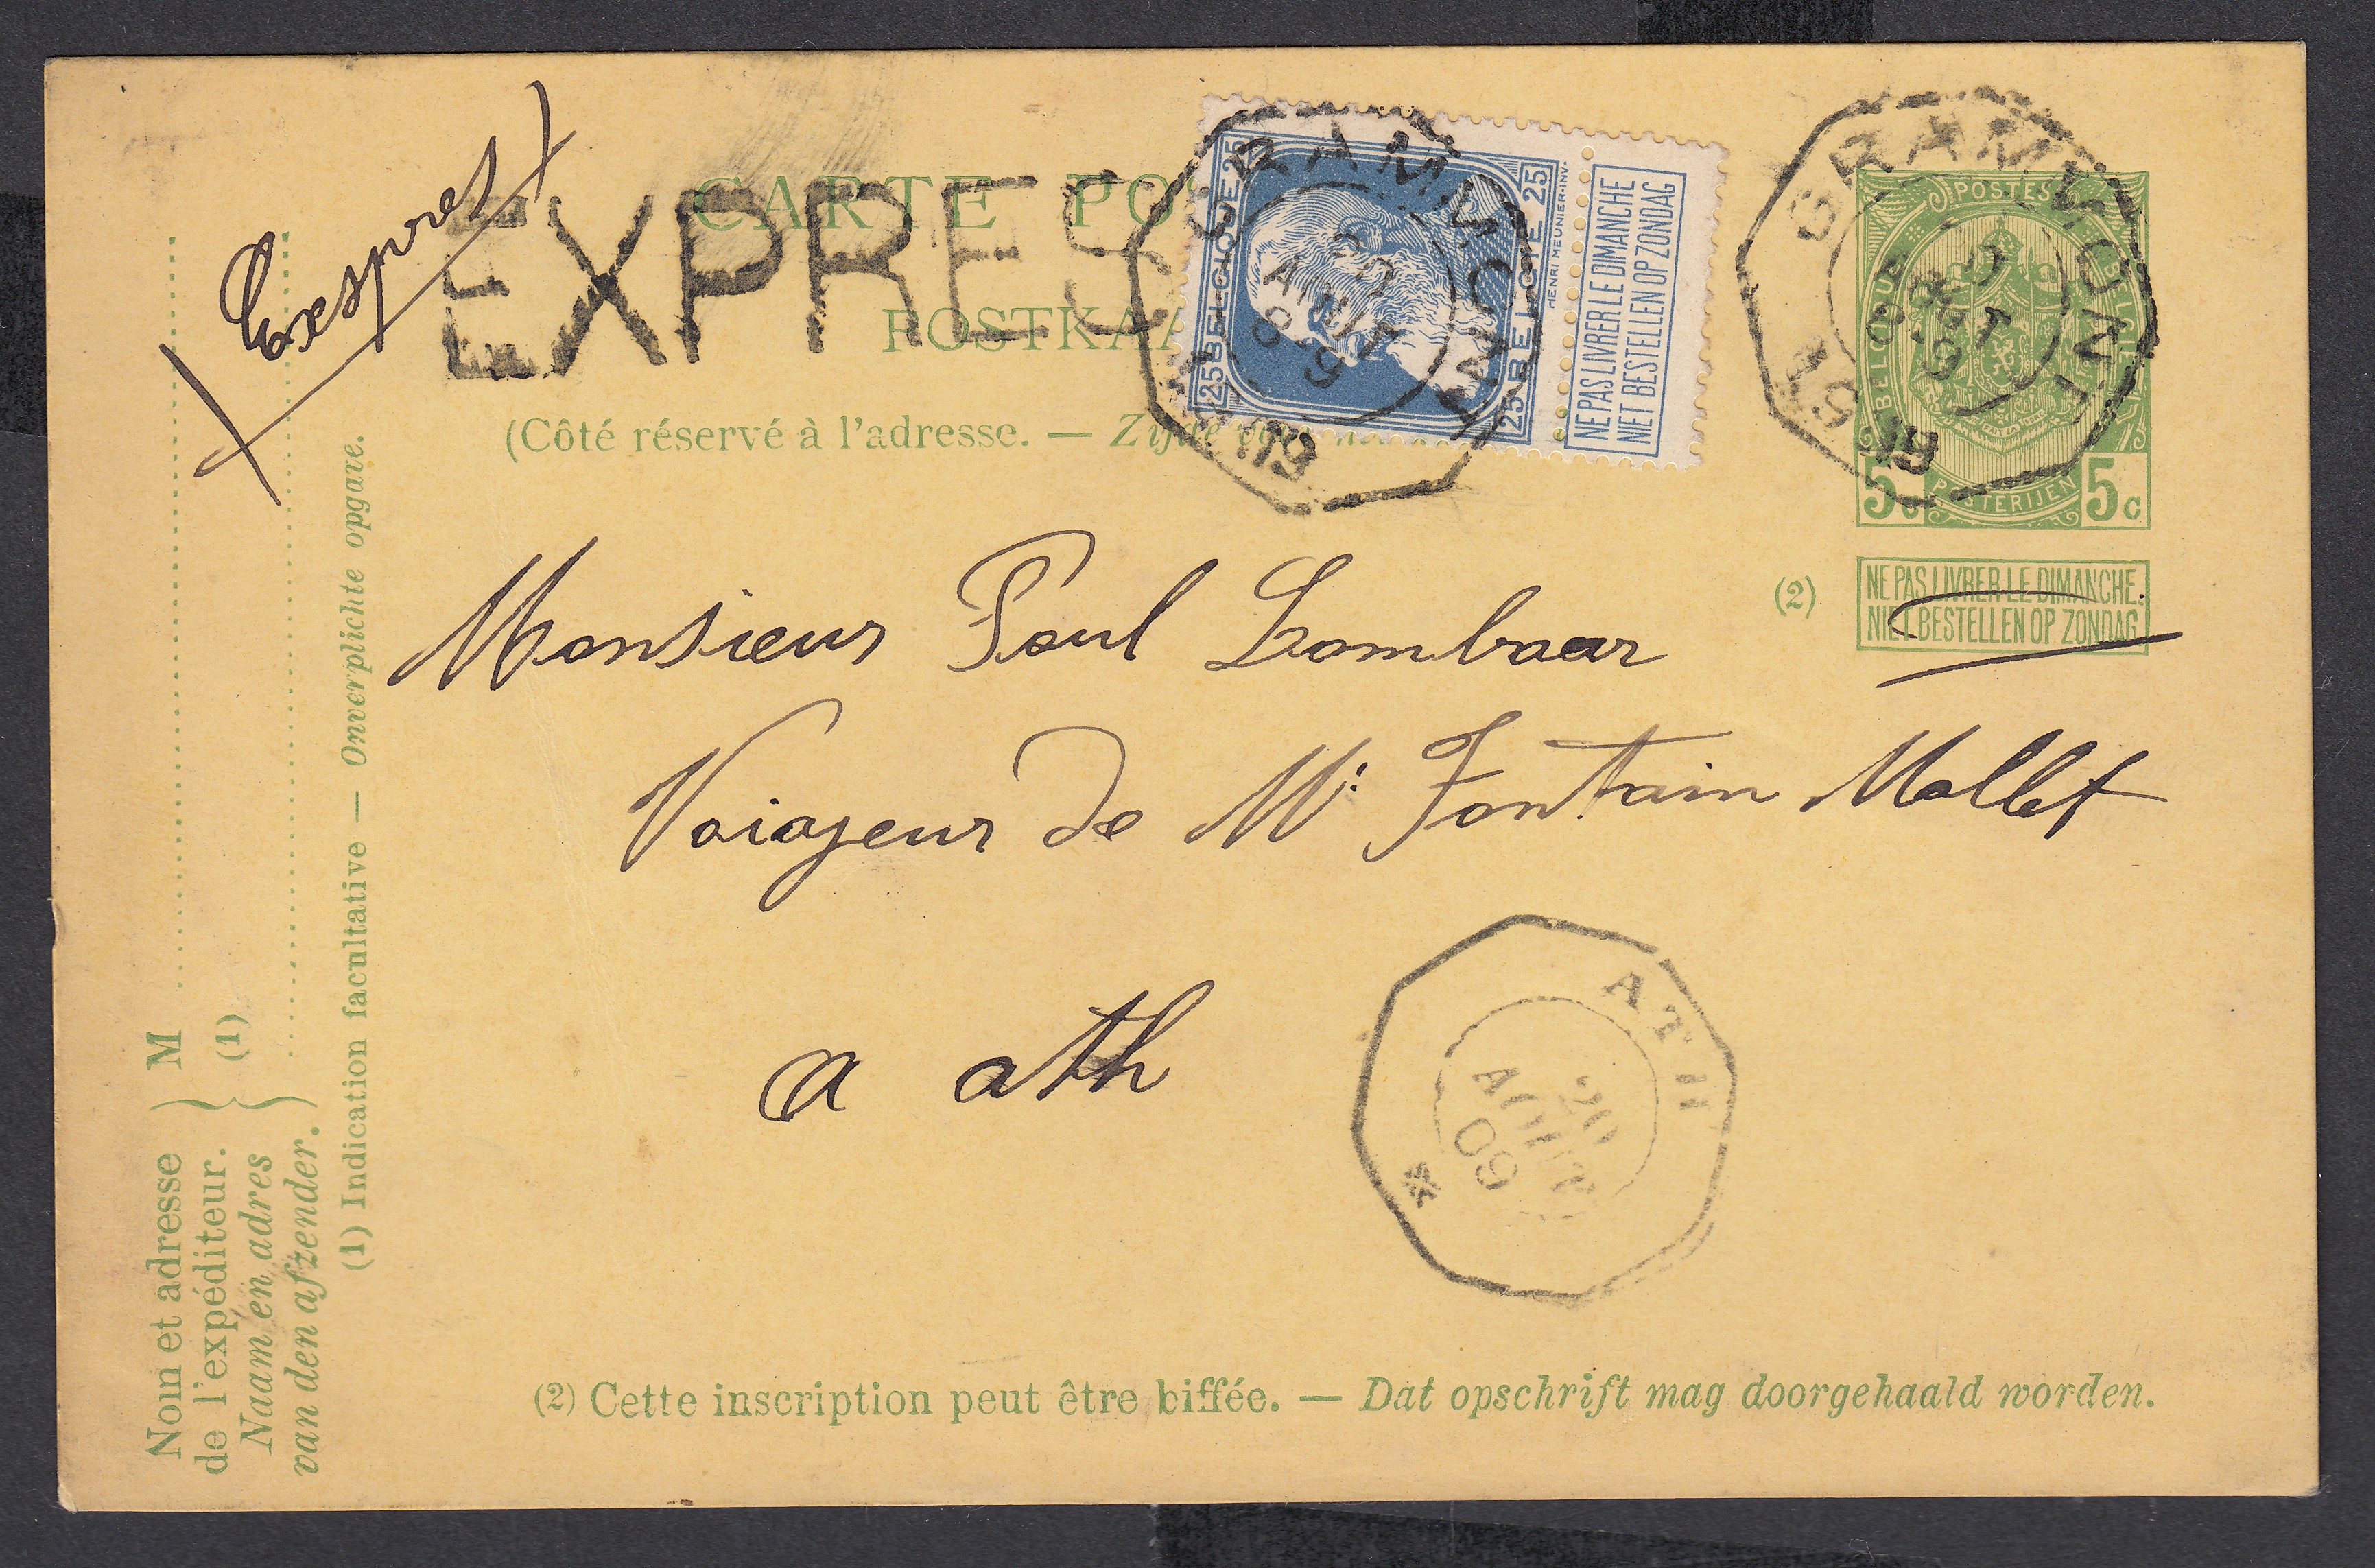 Exespres
EXPRES
CARTE PO
POSTKAA
(Côté réservé à l'adresse. — Zijde
25 BELGIQUE 25
25 BELGIË 25
HENRI MEUNIER·INV.
NE PAS LIVRER LE DIMANCHE
NIET BESTELLEN OP ZONDAG
GRAMMONT
20
AOUT
09
POSTES
BELGIQUE
BELGIË
POSTERIJEN
5c 5c
GRAMMONT
AOUT
(2)
NE PAS LIVRER LE DIMANCHE.
NIET BESTELLEN OP ZONDAG
Monsieur Paul Lombaar
Voiajeur de Mr Fontain Mollet
a ath
ATH
20
AOUT
09
Nom et adresse
de l'expéditeur.
Naam en adres
van den afzender.
M
(1)
(1) Indication facultative — Onverplichte opgave.
(2) Cette inscription peut être biffée. — Dat opschrift mag doorgehaald worden.